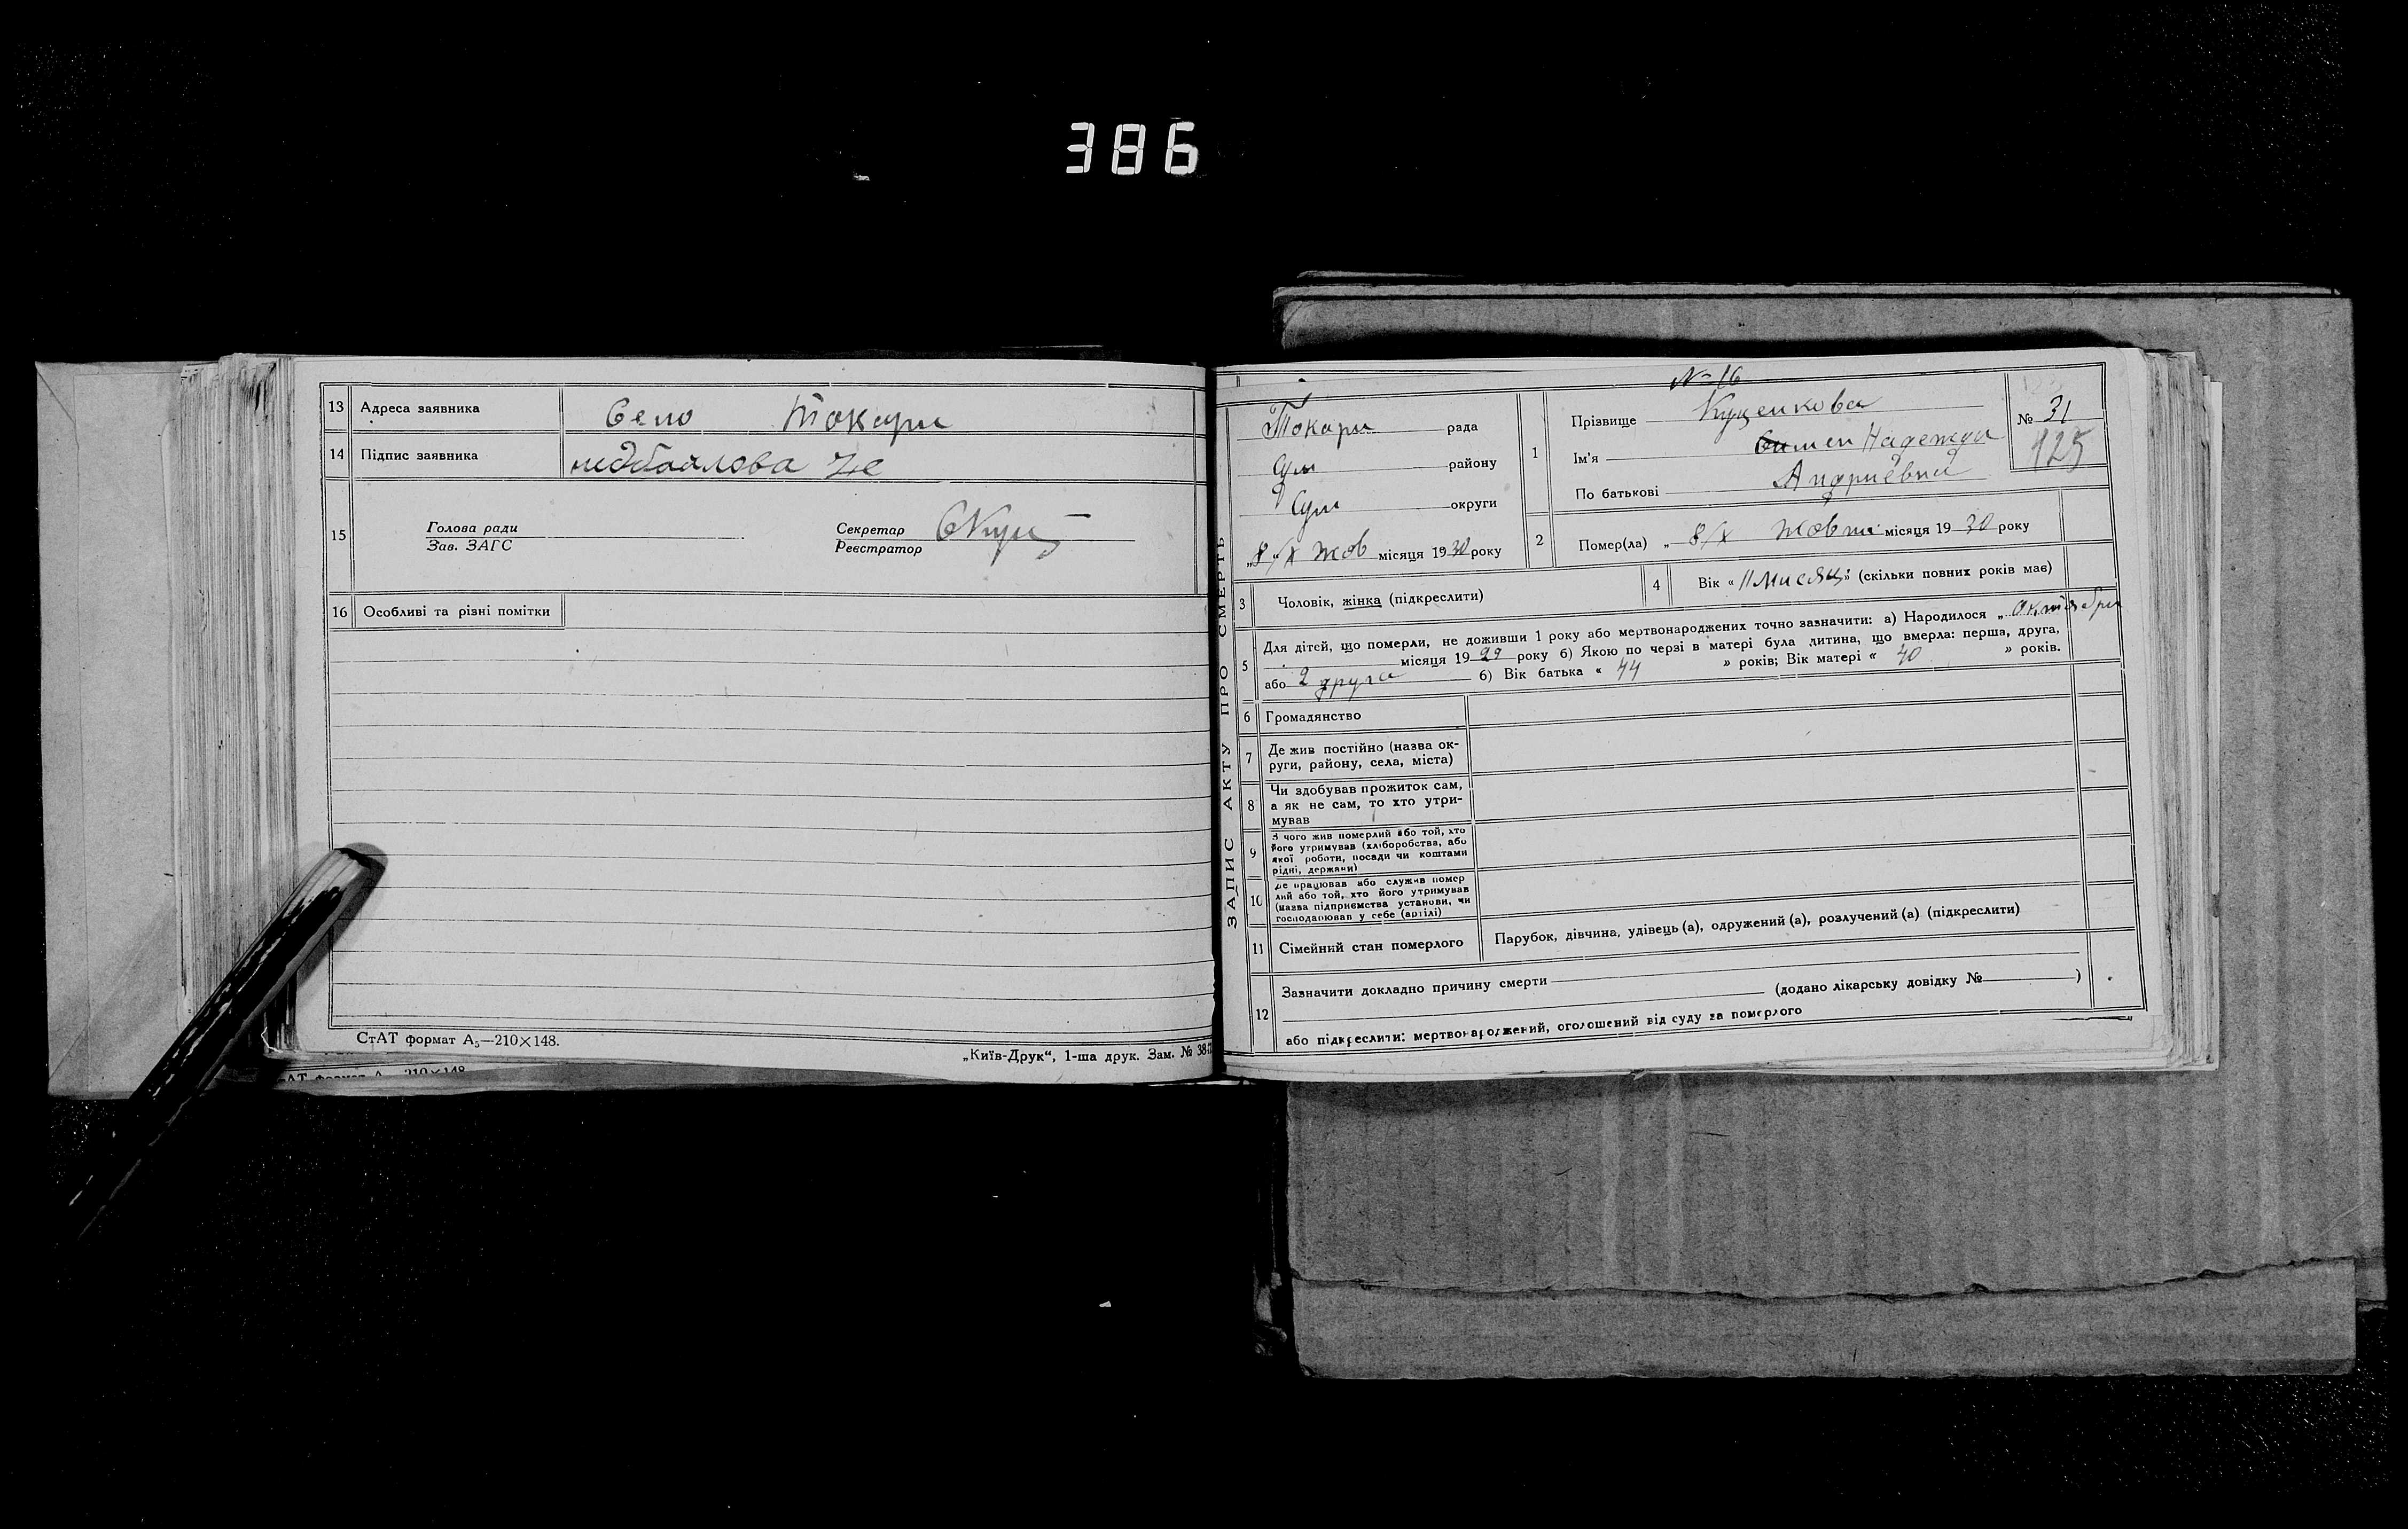 386
13 Адреса заявника Село Токари
14 Підпис заявника недбайлова
15 Голова ради
Зав. ЗАГС
Секретар
Реєстратор
16 Особливі та різні помітки
СтАТ формат А₅—210×148.
„Київ-Друк“, 1-ша друк. Зам. № 38
210×148
ЗАПИС АКТУ ПРО СМЕРТЬ
№ 16
Токари рада
Сум району
Сум округи
„8/X Жов місяця 1930 року
1 Прізвище Куценкова
Ім'я Надежда
По батькові Андриевна
№ 31
125
2 Помер(ла) „ 8/X Жовт місяця 1930 року
3 Чоловік, жінка (підкреслити)
4 Вік « 11 мисяц » (скільки повних років має)
5 Для дітей, що померли, не доживши 1 року або мертвонароджених точно зазначити: а) Народилося „ Октября
місяця 1929 року б) Якою по черзі в матері була дитина, що вмерла: перша, друга,
або 2 друга б) Вік батька « 44 » років; Вік матері « 40 » років.
6 Громадянство
7 Де жив постійно (назва ок-
руги, району, села, міста)
8 Чи здобував прожиток сам,
а як не сам, то хто утри-
мував
9 З чого жив померлий або той, хто
його утримував (хліборобства, або
якої роботи, посади чи коштами
рідні, держави)
10 Де працював або служив помер
лий або той, хто його утримував
(назва підприємства установи, чи
господарював у себе (артілі)
11 Сімейний стан померлого Парубок, дівчина, удівець (а), одружений (а), розлучений (а) (підкреслити)
12 Зазначити докладно причину смерти
(додано лікарську довідку № )
або підкреслити: мертвонароджений, оголошений від суду за померлого